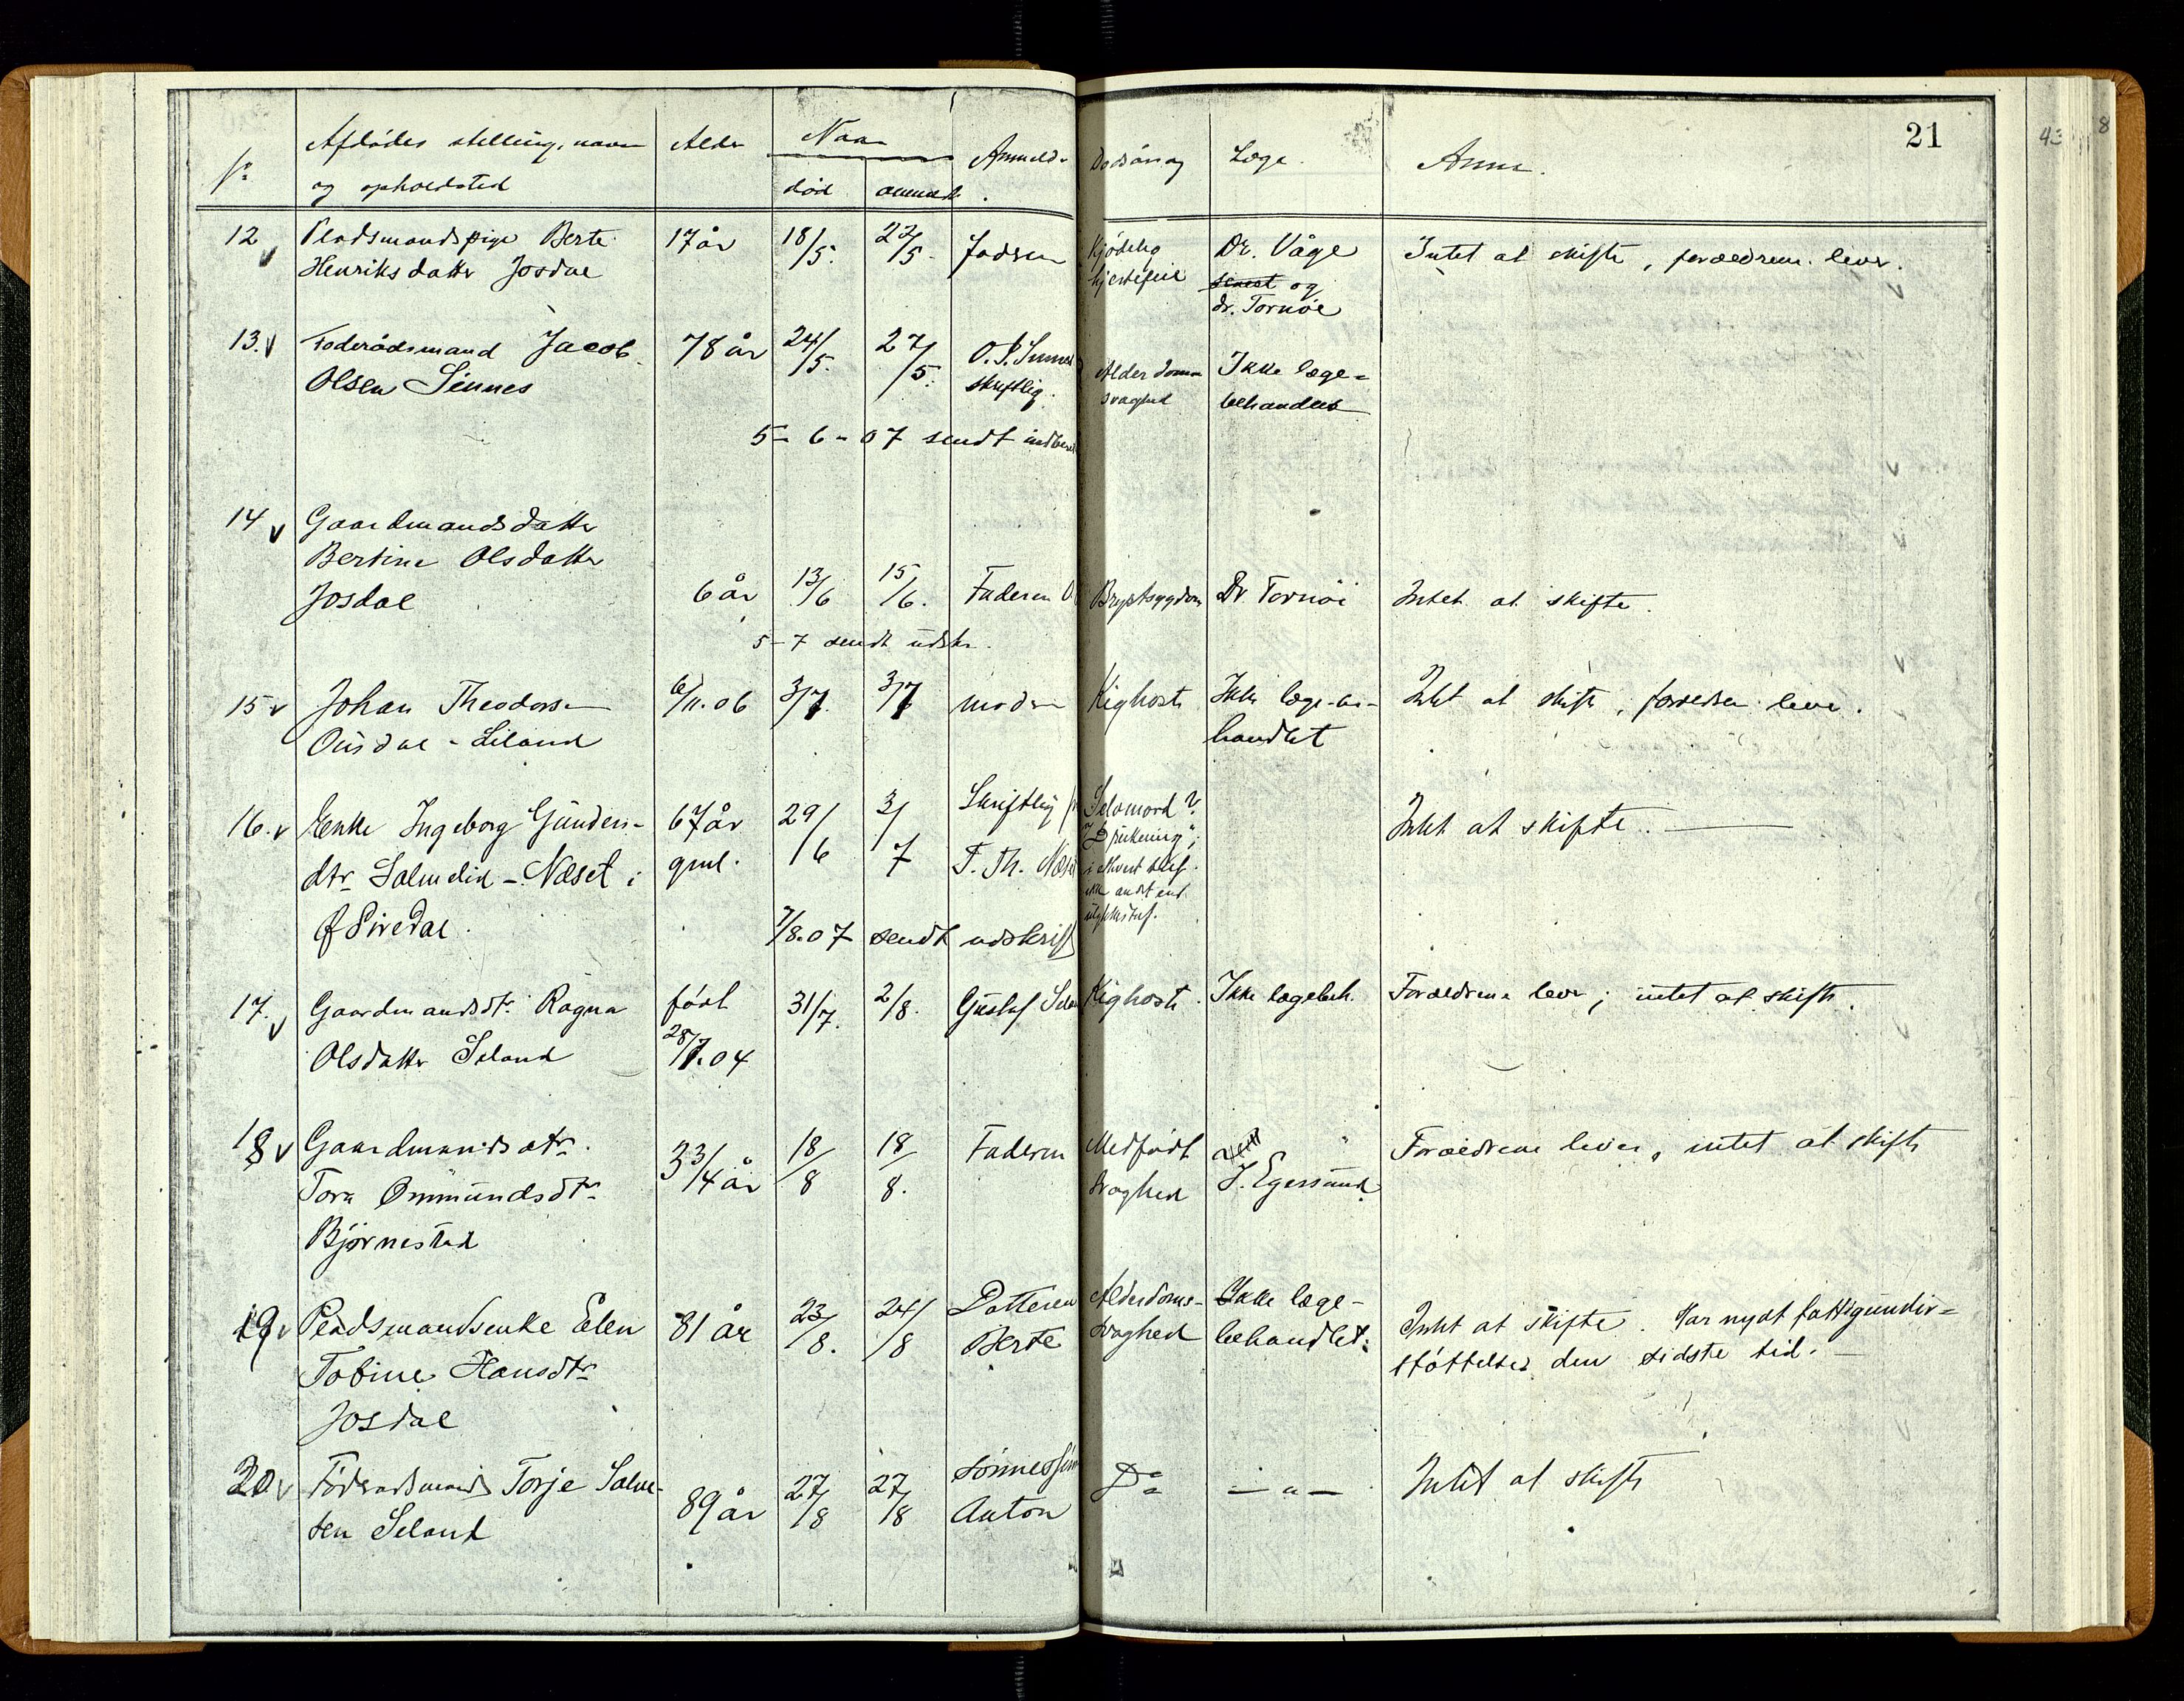 21
43
8
No Afdødes stilling, navn Alder Naar Anmeld. Dødsårsag Læge. Anm.
og opholdsted død anmeldt
12 Pladsmandspige Berte 17 år 18/5. 22/5. Fadren Dr. Våge Intet at skifte, forældrene lever.
Henriksdatter Josdal hjertefeil senest og
dr. Tornøe
13. Foderådsmand Jacob 78 år 24/5. 27/5. O. J. Sinnes Alderdoms Ikke læge-
Olsen Sinnes skriftlig. svaghed behandlet
5-6-07 sendt indberet
14 Gaardmandsdatter
Bertine Olsdatter
Josdal 6 år 13/6 15/6. Faderen O Brystsygdom Dr Tornöe Intet at skifte.
5-7 sendt udskr.
15 Johan Theodorsen 6/11.06 3/7. 3/7 moderen Kighoste Ikke læge-be- Intet at skifte, forældrene lever.
Ousdal-Liland handlet
16. Enke Ingeborg Gunders- 67 år 29/6 3/7 Skriftlig Selvmord? Intet at skifte.
dtr Salmelid-Næset i gml. T. Th. Næset "Drukning";
Ø Siredal. 7/8.07 sendt udskrift
17. Gaardmandsdtr. Ragna født 31/7. 2/8. Gustaf Kighoste. Ikke lægebeh. Forældrene lever; intet at skifte.
Olsdatter Seland 28/7.04
18 Gaardmandsdtr. 3 3/4 år 18/8 18/8. Faderen Medfødt Forældrene lever, intet at skifte
Tora Ommundsdtr. svaghed J. Egersund.
Bjørnestad
19 Pladsmandsenke Elen 81 år 23/8. 24/8 Datteren Alderdoms- Ikke læge- Intet at skifte. Har nydt fattigunder-
Tobine Hansdtr. Berte svaghed behandlet. støttelse den sidste tid.
Josdal
20 Föderådsmand Torje Salve- 89 år 27/8 27/8 sønnesøn Do - " - Intet at skifte
sen Seland Anton